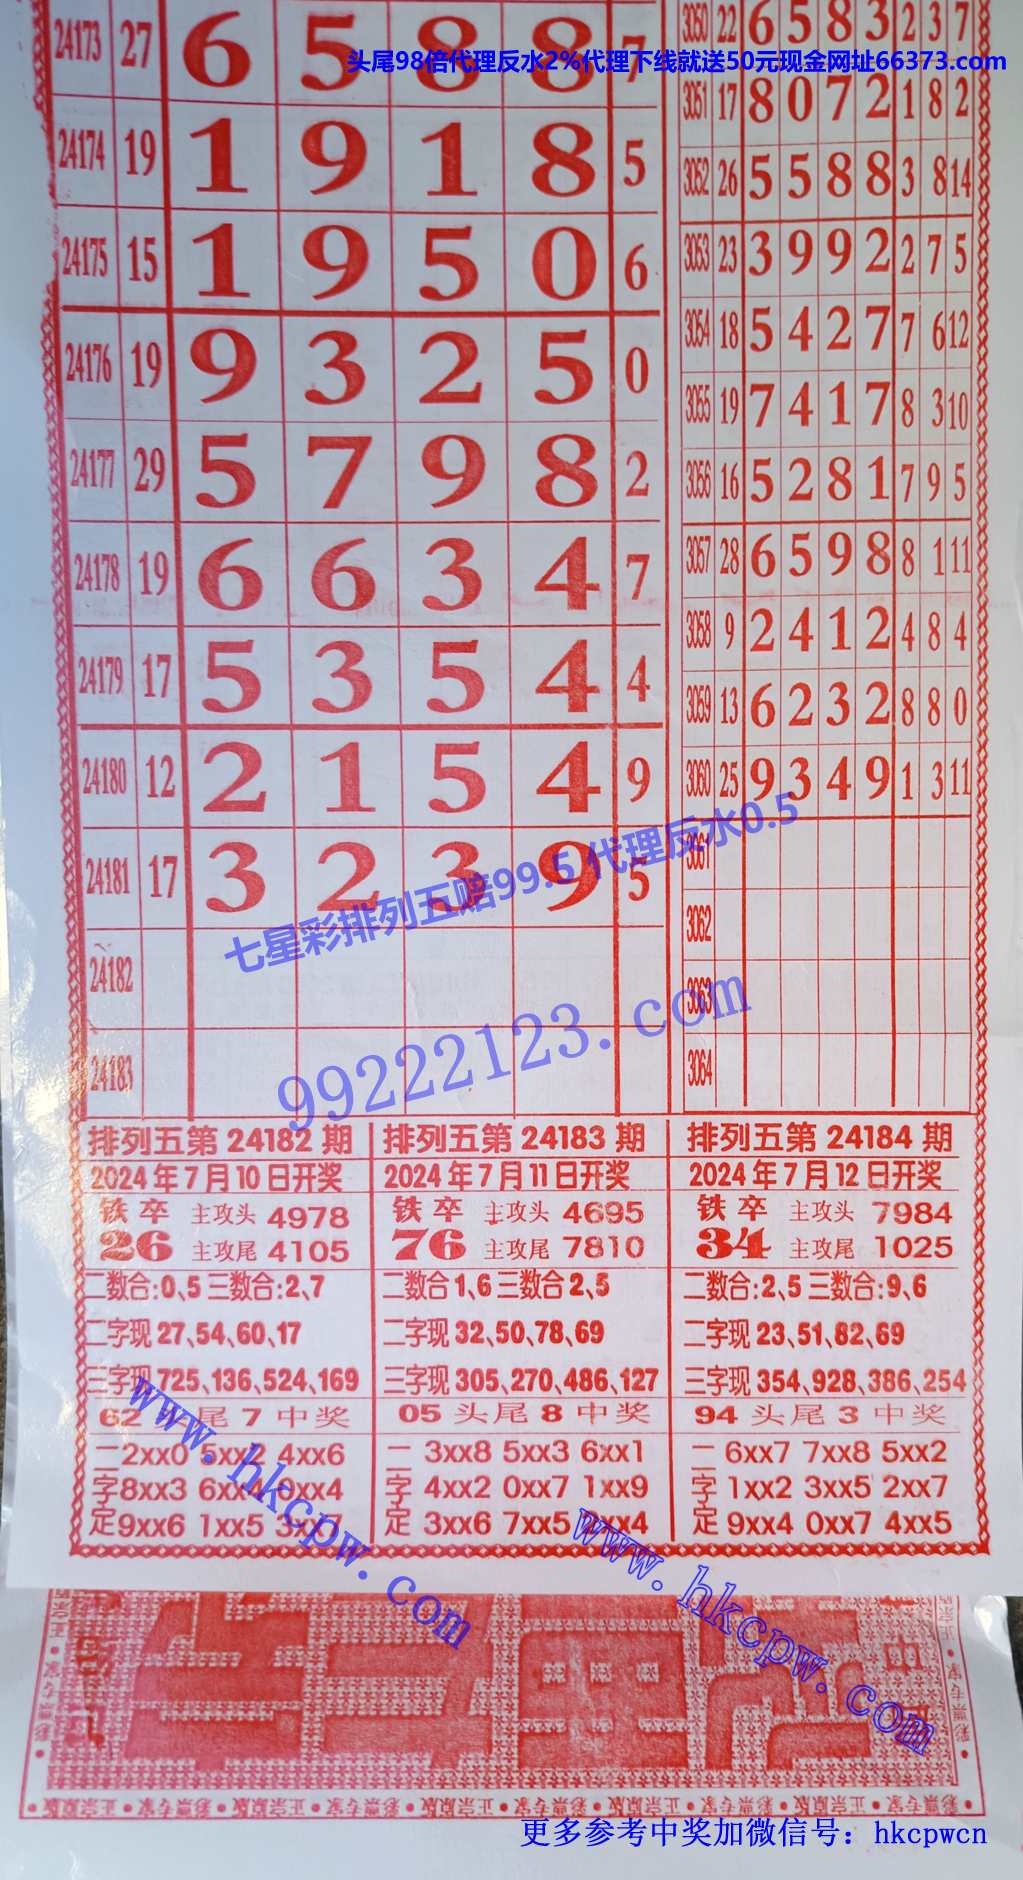 24173 27 6 5 8 8 7
头尾98倍代理反水2%代理下线就送50元现金网址66373.com
24174 19 1 9 1 8 5
24175 15 1 9 5 0 6
24176 19 9 3 2 5 0
24177 29 5 7 9 8 2
24178 19 6 6 3 4 7
24179 17 5 3 5 4 4
24180 12 2 1 5 4 9
24181 17 3 2 3 9 5
24182
24183
3050 22 6 5 8 3 2 3 7
3051 17 8 0 7 2 1 8 2
3052 26 5 5 8 8 3 8 14
3053 23 3 9 9 2 2 7 5
3054 18 5 4 2 7 7 6 12
3055 19 7 4 1 7 8 3 10
3056 16 5 2 8 1 7 9 5
3057 28 6 5 9 8 8 1 11
3058 9 2 4 1 2 4 8 4
3059 13 6 2 3 2 8 8 0
3060 25 9 3 4 9 1 3 11
3061
3062
3063
3064
七星彩排列五赔99.5 代理反水0.5
99222123.com
排列五第 24182 期
2024年7月10日开奖
铁卒 主攻头 4978
26 主攻尾 4105
二数合:0、5 三数合:2、7
二字现 27、54、60、17
三字现 725、136、524、169
62 头尾 7 中奖
二 2xx0 5xx2 4xx6
字 8xx3 6xx1 0xx4
定 9xx6 1xx5 3xx7
排列五第 24183 期
2024年7月11日开奖
铁卒 主攻头 4695
76 主攻尾 7810
二数合 1、6 三数合 2、5
二字现 32、50、78、69
三字现 305、270、486、127
05 头尾 8 中奖
二 3xx8 5xx3 6xx1
字 4xx2 0xx7 1xx9
定 3xx6 7xx5 xx4
排列五第 24184 期
2024年7月12日开奖
铁卒 主攻头 7984
34 主攻尾 1025
二数合:2、5 三数合:9、6
二字现 23、51、82、69
三字现 354、928、386、254
94 头尾 3 中奖
二 6xx7 7xx8 5xx2
字 1xx2 3xx5 2xx7
定 9xx4 0xx7 4xx5
www.hkcpw.com
www.hkcpw.com
彩票专家 • 正宗原版 • 彩票专家 • 正宗原版 • 彩票专家 • 正宗原版 • 彩票专家
更多参考中奖加微信号：hkcpwcn